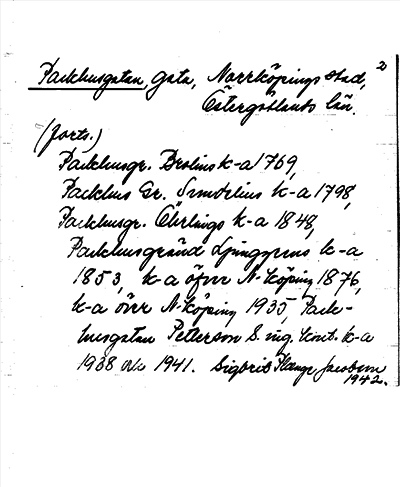 2
Packhusgatan, gata, Norrköpings stad,
Östergötlands län.
(forts.)
Packhusgr. Brolins k-a 1769,
Packhus Gr. Sundelius k-a 1798,
Packhusgr. Öhrlings k-a 1848,
Packhusgränd Ljunggrens k-a
1853, k-a öfver N-köping 1876,
k-a över N-köping 1935, Pack-
husgatan Petterson S. ing. kont. k-a
1938 och 1941. Sigbrit Plænge Jacobson
1942.